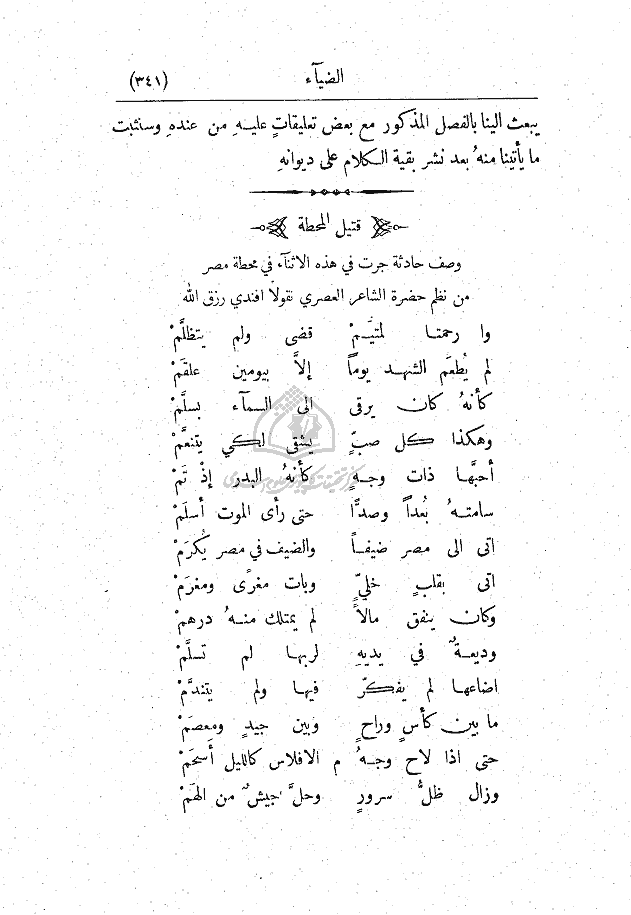 الضيآء (٣٤١)
يبعث الينا بالفصل المذكور مع بعض تعليقاتٍ عليهِ من عندهِ وسنثبت
ما يأتينا منهُ بعد نشر بقية الكلام على ديوانهِ
قتيل المحطة
وصف حادثة جرت في هذه الاثنآء في محطة مصر
من نظم حضرة الشاعر العصري نقولا افندي رزق الله
وا رحمتا لمتيَّمْ قضى ولم يتظلَّمْ
لم يُطعَم الشهد يوماً إلاَّ بيومين علقَمْ
كأنهُ كان يرقى الى السمآء بسلَّمْ
وهكذا كل صبٍّ يشقى لكي يتنعَّمْ
أحبَّها ذات وجهٍ كأنهُ البدر إذ تَمْ
سامتهُ بُعداً وصدًّا حتى رأى الموت أسلَمْ
اتى الى مصر ضيفاً والضيف في مصر يُكرَمْ
اتى بقلبٍ خليٍّ وبات مغرًى ومغرَمْ
وكان ينفق مالاً لم يمتلك منهُ درهمْ
وديعةٌ في يديهِ لربها لم تسلَّمْ
اضاعها لم يفكرّ فيها ولم يتندَّمْ
ما بين كأسٍ وراحٍ وبين جيدٍ ومِعصَمْ
حتى اذا لاح وجهُ م الافلاس كالليل أسحَمْ
وزال ظلُّ سرورٍ وحلَّ جيشٌ من الهَمْ